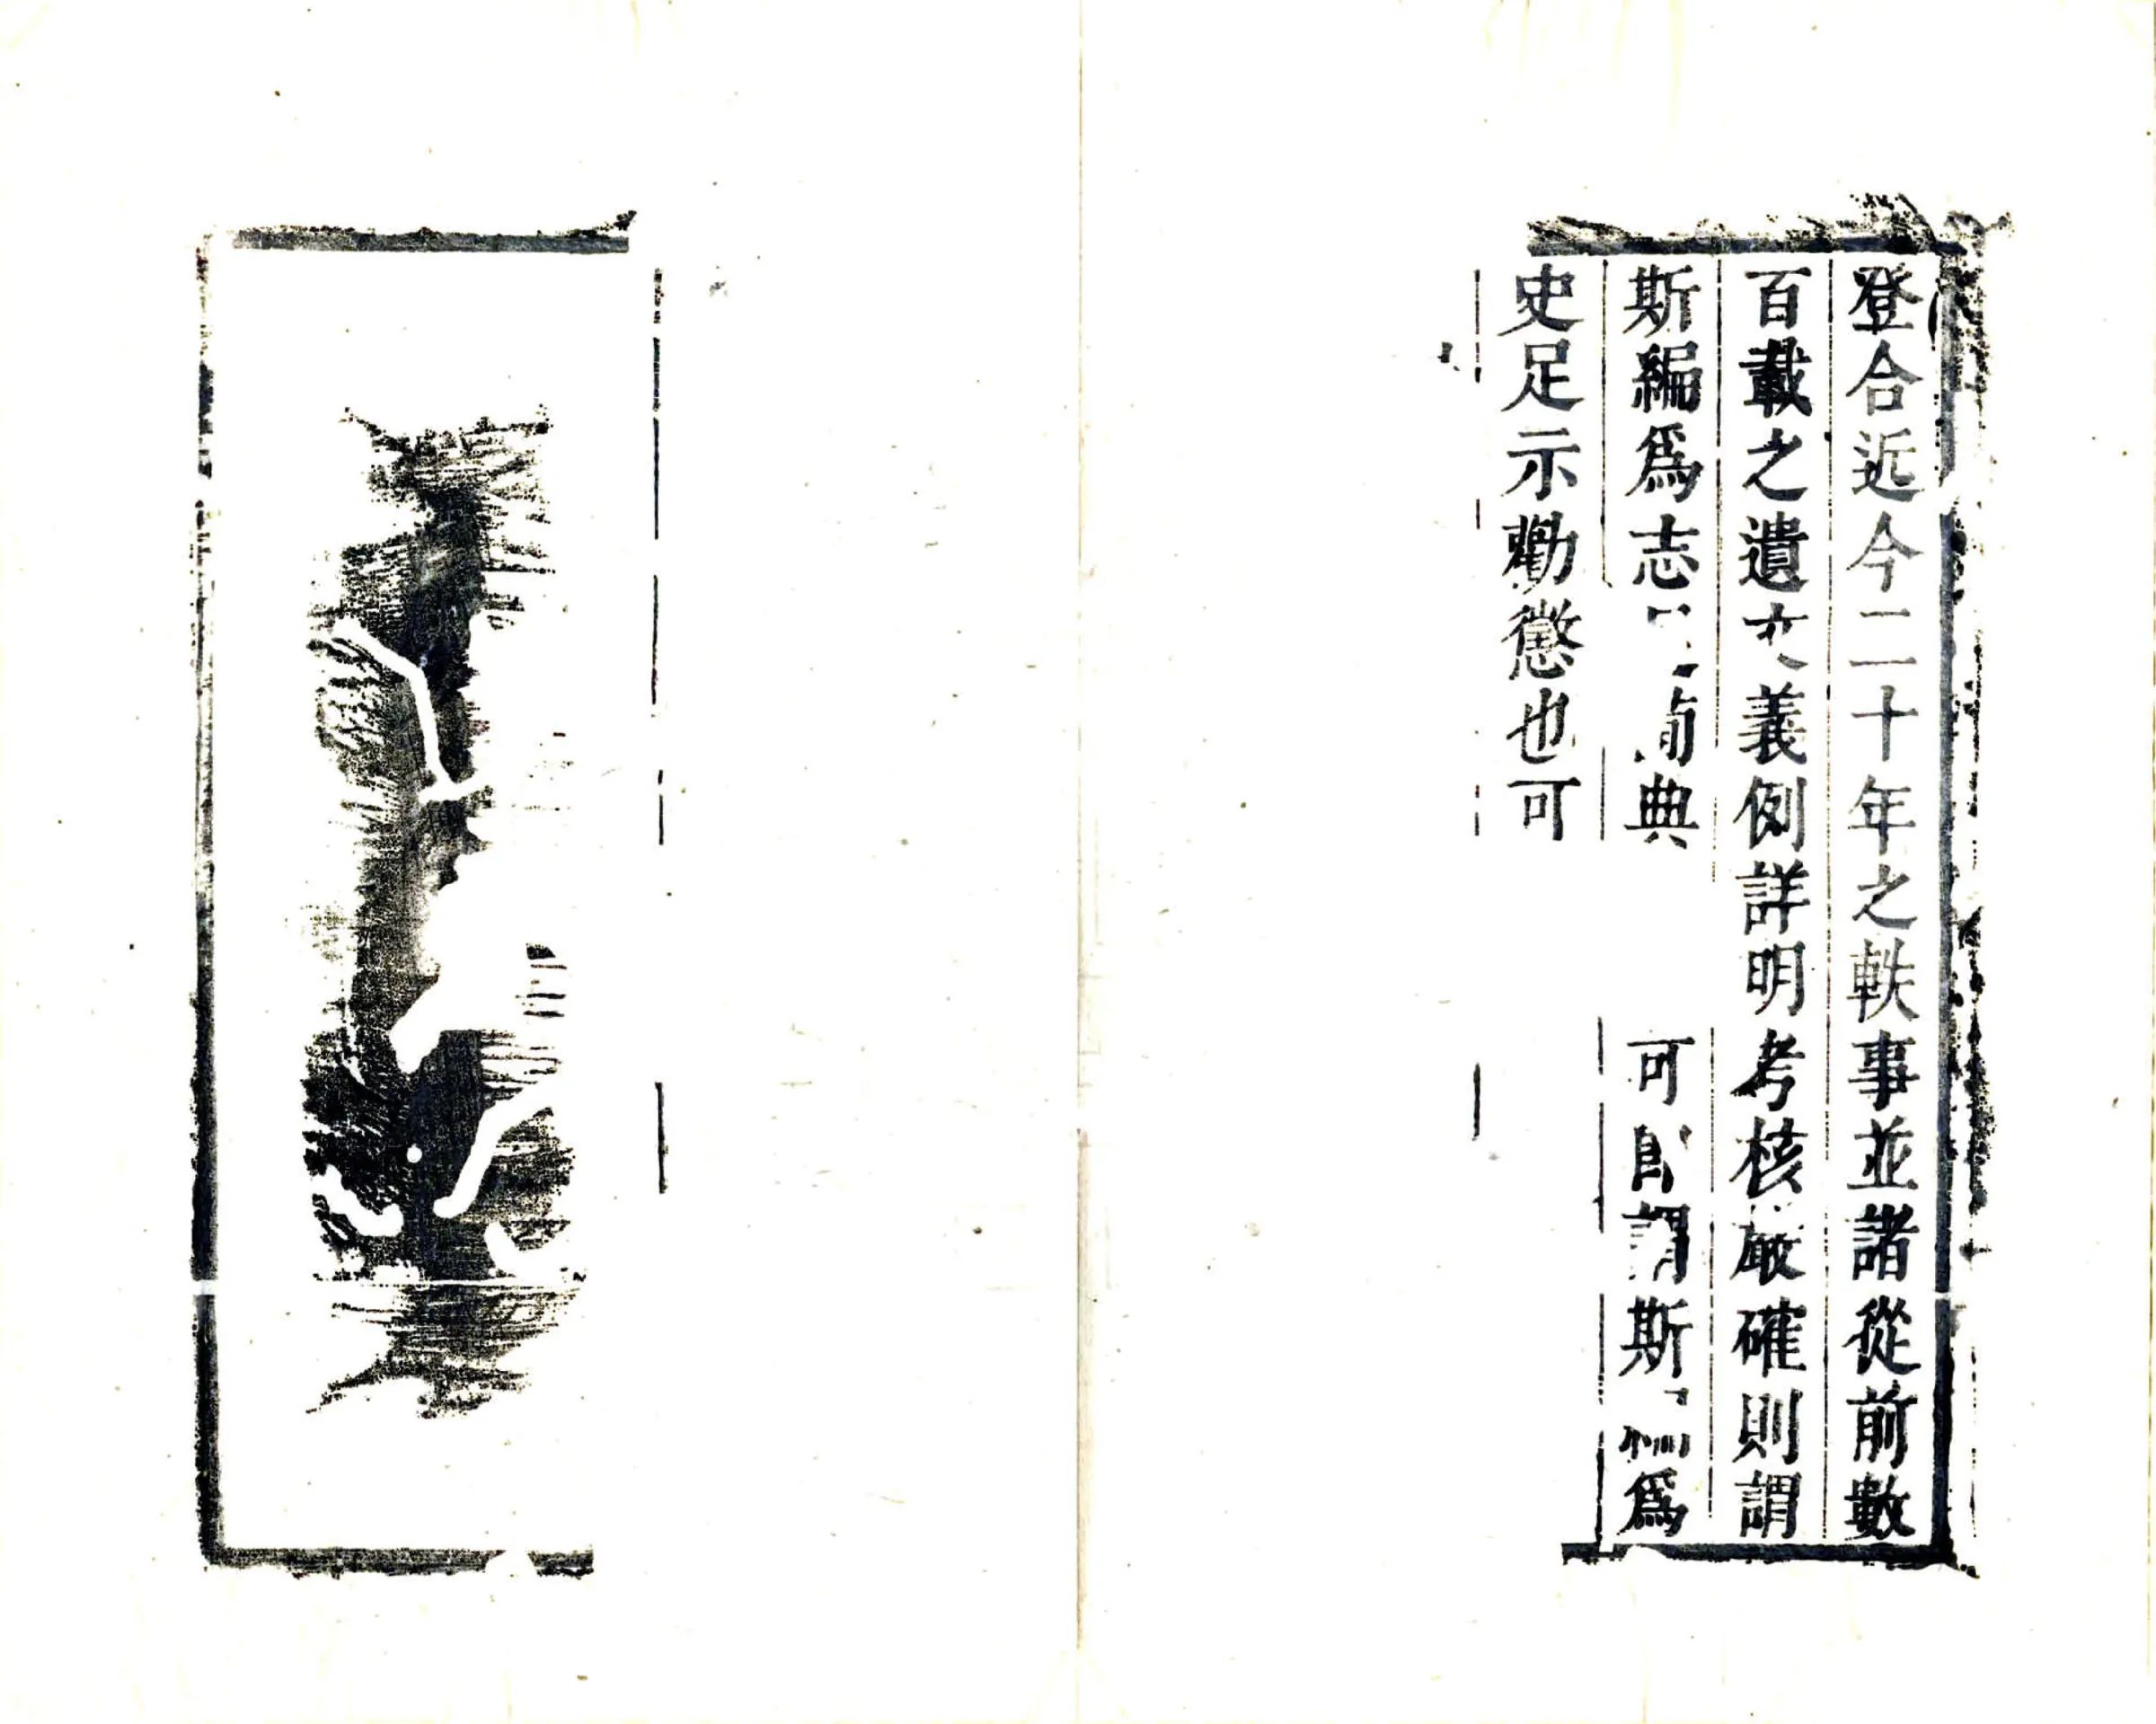 登合近今二十年之軼事並諸從前數
百載之遺文義例詳明考核嚴確則謂
斯編爲志典可卽謂斯編爲
史足示勸懲也可